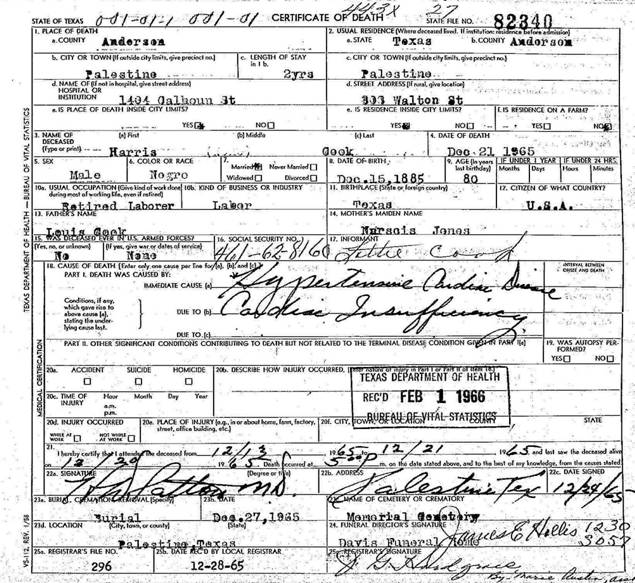 001-01-1 001-01 443X 27
STATE OF TEXAS CERTIFICATE OF DEATH STATE FILE NO. 82340
1. PLACE OF DEATH 2. USUAL RESIDENCE (Where deceased lived. If institution: residence before admission)
a. COUNTY Anderson a. STATE Texas b. COUNTY Anderson
b. CITY OR TOWN (If outside city limits, give precinct no.) c. LENGTH OF STAY in 1 b. c. CITY OR TOWN (If outside city limits, give precinct no.)
Palestine 2yrs Palestine
d. NAME OF (If not in hospital, give street address) HOSPITAL OR INSTITUTION d. STREET ADDRESS (If rural, give location)
1404 Calhoun St 303 Walton St
e. IS PLACE OF DEATH INSIDE CITY LIMITS? e. IS RESIDENCE INSIDE CITY LIMITS? f. IS RESIDENCE ON A FARM?
YES NO YES NO YES NO
3. NAME OF DECEASED (Type or print) (a) First (b) Middle (c) Last 4. DATE OF DEATH
Harris Cook Dec 21 1965
5. SEX 6. COLOR OR RACE 7. Married Never Married 8. DATE OF BIRTH 9. AGE (In years last birthday) IF UNDER 1 YEAR IF UNDER 24 HRS.
Widowed Divorced Months Days Hours Minutes
Male Negro Dec.15,1885 80
10a. USUAL OCCUPATION (Give kind of work done during most of working life, even if retired) 10b. KIND OF BUSINESS OR INDUSTRY 11. BIRTHPLACE (State or foreign country) 12. CITIZEN OF WHAT COUNTRY?
Retired Laborer Labor Texas U.S.A.
13. FATHER'S NAME 14. MOTHER'S MAIDEN NAME
Louis Cook Narsois Jones
15. WAS DECEASED EVER IN U.S. ARMED FORCES? 16. SOCIAL SECURITY NO. 17. INFORMANT
(Yes, no, or unknown) (If yes, give war or dates of service)
No None 461-62-8160 Lettie Cook
18. CAUSE OF DEATH [Enter only one cause per line for (a), (b), and (c).] INTERVAL BETWEEN ONSET AND DEATH
PART I. DEATH WAS CAUSED BY:
IMMEDIATE CAUSE (a) Hypertensive Cardiac Disease
Conditions, if any, which gave rise to above cause (a), stating the underlying cause last. DUE TO (b) Cardiac Insufficiency
DUE TO (c)
PART II. OTHER SIGNIFICANT CONDITIONS CONTRIBUTING TO DEATH BUT NOT RELATED TO THE TERMINAL DISEASE CONDITION GIVEN IN PART I(a) 19. WAS AUTOPSY PERFORMED?
YES NO
20a. ACCIDENT SUICIDE HOMICIDE 20b. DESCRIBE HOW INJURY OCCURRED. (Enter nature of injury in Part I or Part II of item 18.)
TEXAS DEPARTMENT OF HEALTH
REC'D FEB 1 1966
BUREAU OF VITAL STATISTICS
20c. TIME OF INJURY Hour Month Day Year
a.m.
p.m.
20d. INJURY OCCURRED 20e. PLACE OF INJURY (e.g., in or about home, farm, factory, street, office building, etc.) 20f. CITY, TOWN, OR LOCATION COUNTY STATE
WHILE AT WORK NOT WHILE AT WORK
21. I hereby certify that I attended the deceased from 12/13 1965 to 12/21 1965 and last saw the deceased alive
on 12/20 1965 Death occurred at m. on the date stated above, and to the best of my knowledge, from the causes stated.
22a. SIGNATURE (Degree or title) 22b. ADDRESS 22c. DATE SIGNED
Patton M.D. Palestine Tex 12/24/65
23a. BURIAL, CREMATION, REMOVAL (Specify) 23b. DATE 23c. NAME OF CEMETERY OR CREMATORY
Burial Dec.27,1965 Memorial Cemetery
23d. LOCATION (City, town, or county) (State) 24. FUNERAL DIRECTOR'S SIGNATURE James E Hollis 1230
Palestine Texas Davis Funeral Home 3057
25a. REGISTRAR'S FILE NO. 25b. DATE REC'D BY LOCAL REGISTRAR 25c. REGISTRAR'S SIGNATURE
296 12-28-65
TEXAS DEPARTMENT OF HEALTH—BUREAU OF VITAL STATISTICS
MEDICAL CERTIFICATION
VS-112, REV. 1/58